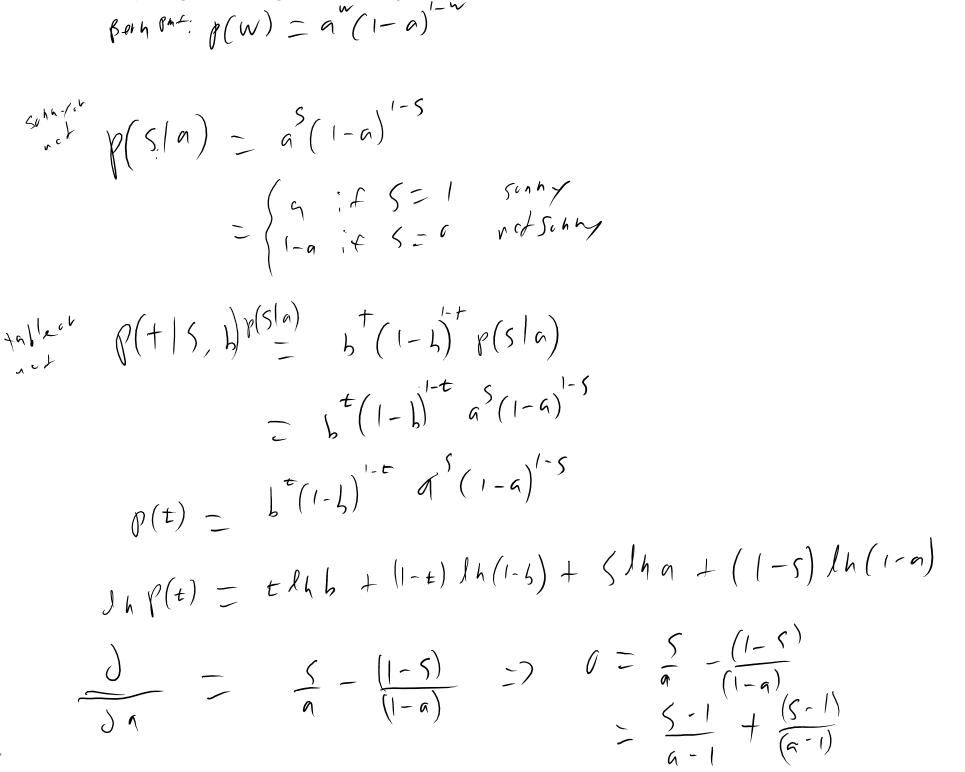 Bern pmf: p(w) = a^w (1-a)^{1-w}
sunny or
not
p(s|a) = a^s (1-a)^{1-s}
= { a if s=1 sunny
1-a if s=0 not sunny
table or
not
p(t|s, b) p(s|a) = b^t (1-b)^{1-t} p(s|a)
= b^t (1-b)^{1-t} a^s (1-a)^{1-s}
p(t) = b^t (1-b)^{1-t} a^s (1-a)^{1-s}
ln p(t) = t ln b + (1-t) ln(1-b) + s ln a + (1-s) ln(1-a)
∂/∂a = s/a - (1-s)/(1-a) => 0 = s/a - (1-s)/(1-a)
= s-1/a-1 + (s-1)/(a-1)